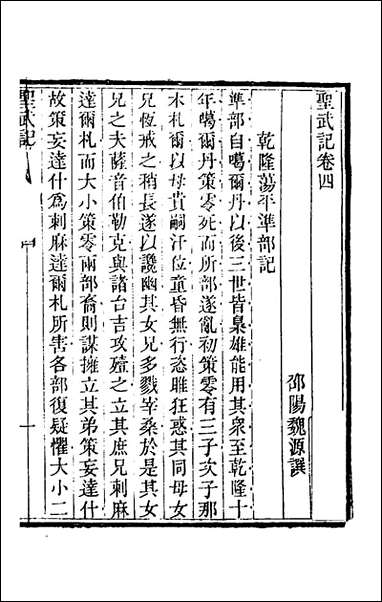 聖武記卷四
邵陽魏源譔
乾隆蕩平準部記
準部自噶爾丹以後三世皆梟雄能用其衆至乾隆十
年噶爾丹策零死而所部遂亂初策零有三子次子那
木札爾以母貴嗣汗位童昏無行恣睢狂惑其同母女
兄侮戒之稍長遂以讒幽其女兄多戮宰桑於是其女
兄之夫薩音伯勒克與諸台吉攻殪之立其庶兄剌麻
達爾札而大小策零兩部裔則謀擁立其弟策妄達什
故策妄達什爲剌麻達爾札所害各部復疑懼大小二
聖武記